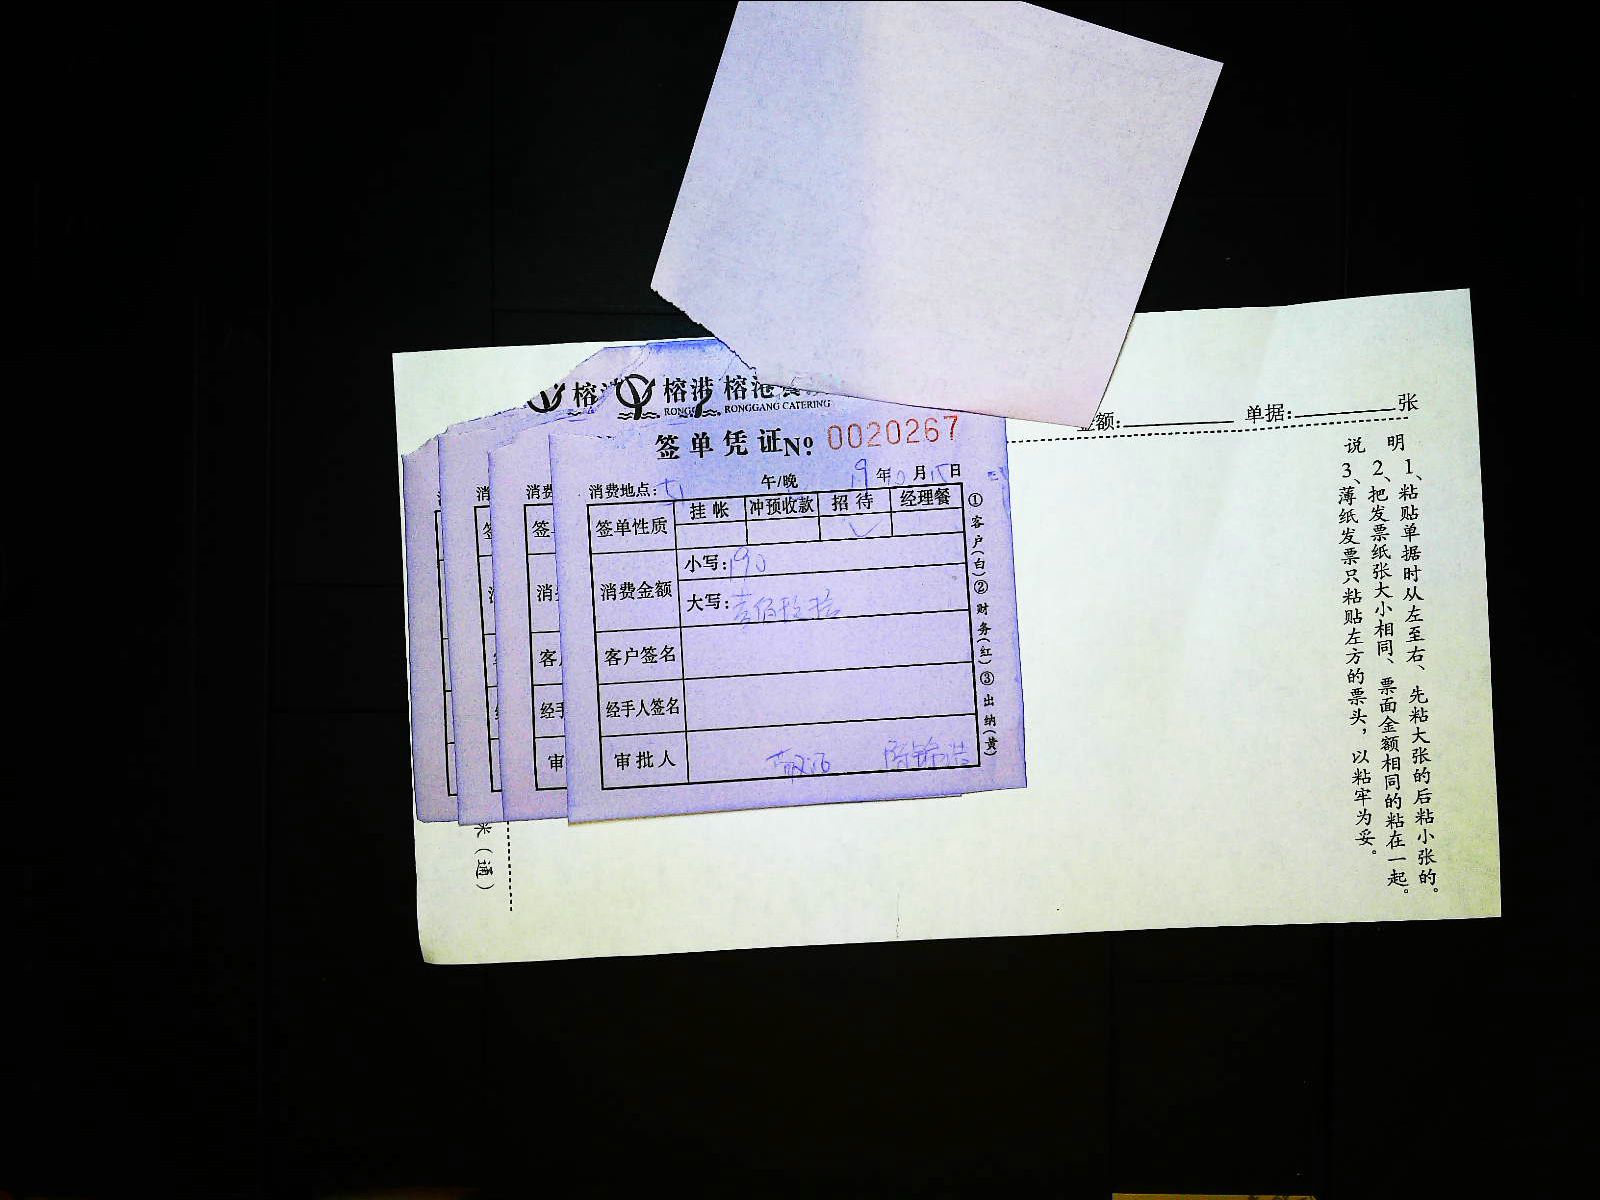 榕
榕港 榕港餐
RONGG RONGGANG CATERING
签单凭证№ 0020267
消费地点: 午/晚 19年10月15日
签单性质 挂帐 冲预收款 招待 经理餐
消费金额 小写:190
大写:壹佰玖拾
客户签名
经手人签名
审批人
①客户(白)②财务(红)③出纳(黄)
消 消 消费
签 签
消 消
客
经手
审
金额: 单据: 张
说 明
1、粘贴单据时从左至右、先粘大张的后粘小张的。
2、把发票纸张大小相同、票面金额相同的粘在一起。
3、薄纸发票只粘贴左方的票头,以粘牢为妥。
(通)